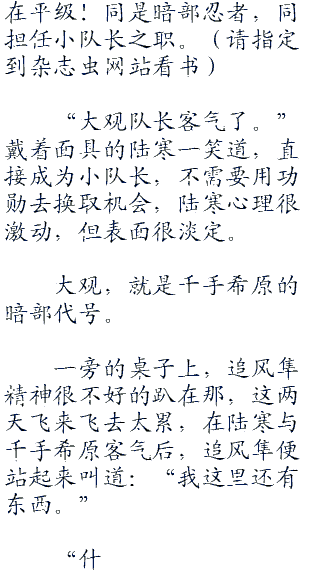 在平级！同是暗部忍者，同
担任小队长之职。（请指定
到杂志虫网站看书）
“大观队长客气了。”
戴着面具的陆寒一笑道，直
接成为小队长，不需要用功
勋去换取机会，陆寒心理很
激动，但表面很淡定。
大观，就是千手希原的
暗部代号。
一旁的桌子上，追风隼
精神很不好的趴在那，这两
天飞来飞去太累，在陆寒与
千手希原客气后，追风隼便
站起来叫道：“我这里还有
东西。”
“什